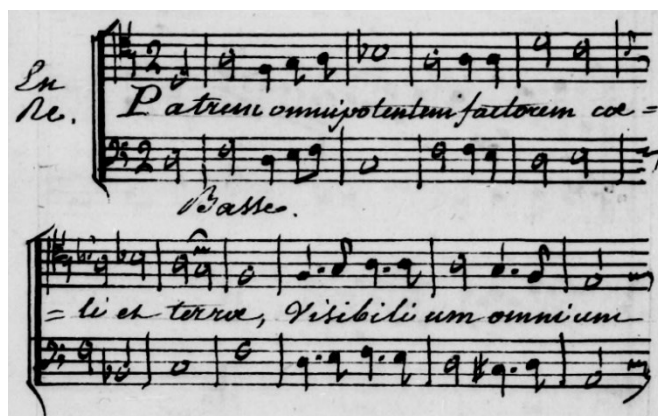 En
Re.
Patrem omnipotentem factorem coe=
Basse.
=li et terræ, Visibilium omnium